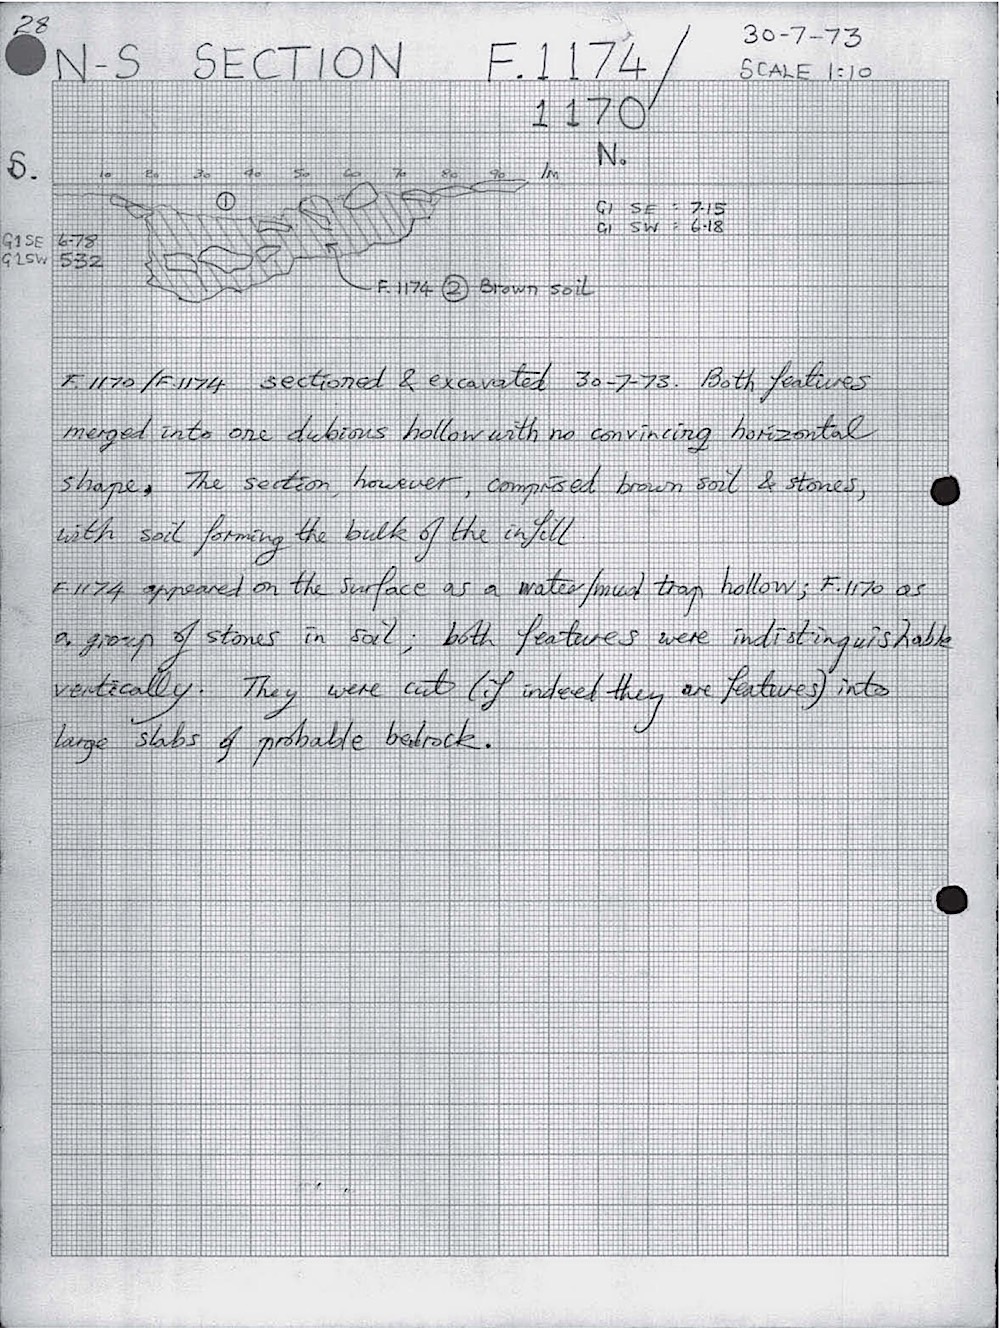 28
N-S SECTION F.1174/
1170
30-7-73
SCALE 1:10
S.
N.
10 20 30 40 50 60 70 80 90 1M
①
G1 SE : 7.15
G1 SW : 6.18
G1SE 6.78
G1SW 5.32
F.1174 ② Brown soil
F.1170/F.1174 sectioned & excavated 30-7-73. Both features
merged into one dubious hollow with no convincing horizontal
shape. The section, however, comprised brown soil & stones,
with soil forming the bulk of the infill.
F.1174 appeared on the surface as a water/mud trap hollow; F.1170 as
a group of stones in soil; both features were indistinguishable
vertically. They were cut (if indeed they are features) into
large slabs of probable bedrock.